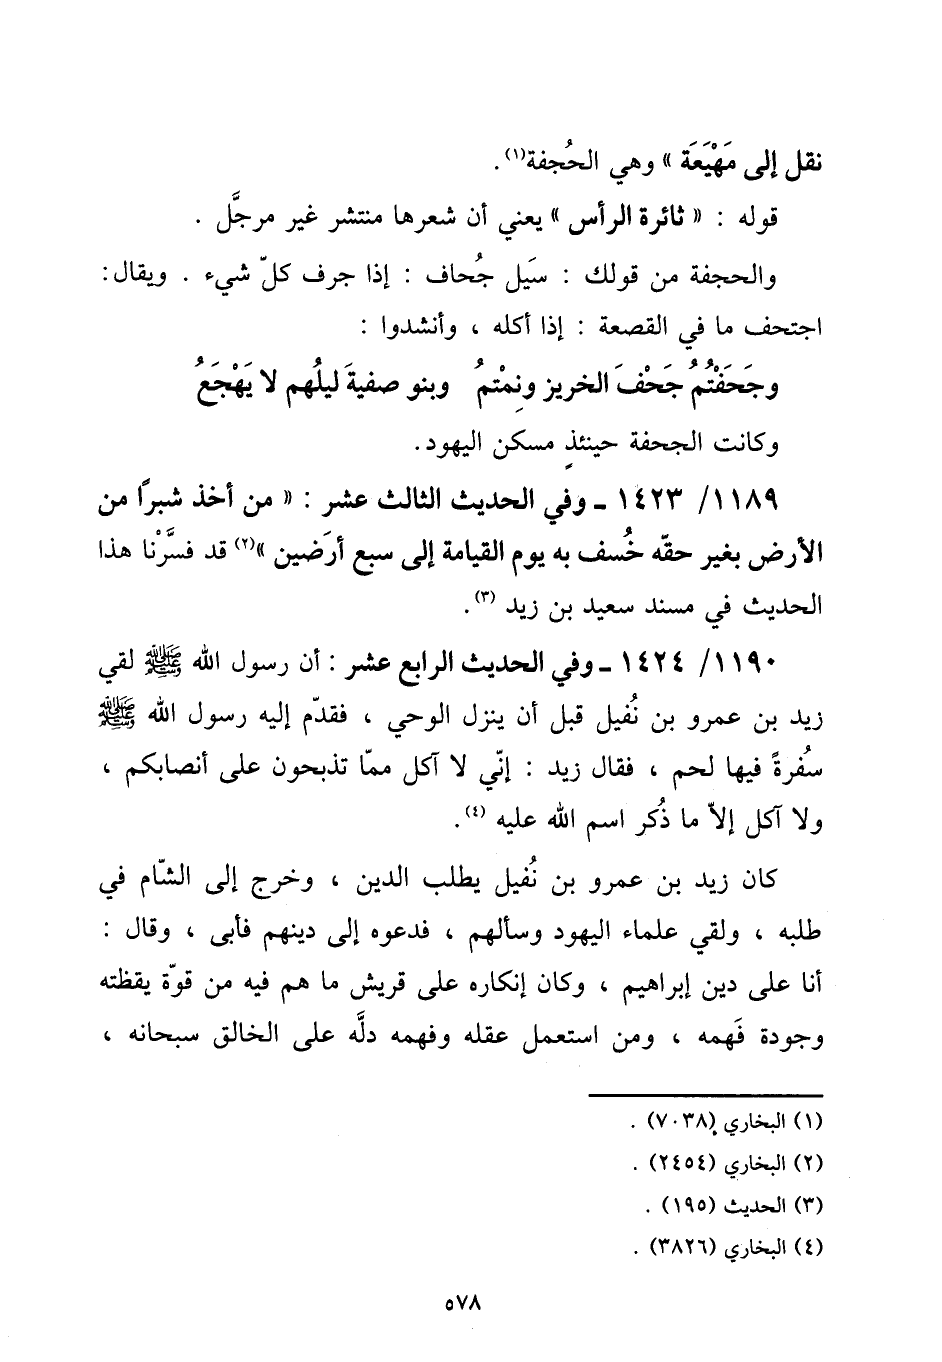 نقل إلى مَهْيَعَة » وهي الحُجفة(١).
قوله : « ثائرة الرأس » يعني أن شعرها منتشر غير مرجَّل .
والحجفة من قولك : سَيل جُحاف : إذا جرف كلّ شيء . ويقال:
اجتحف ما في القصعة : إذا أكله ، وأنشدوا :
وجَحَفْتُمُ جَحْفَ الخريز ونِمْتمُ   وبنو صفيةَ ليلُهم لا يَهْجَعُ
وكانت الجحفة حينئذٍ مسكن اليهود.
١١٨٩/ ١٤٢٣ ـ وفي الحديث الثالث عشر : « من أخذ شبرًا من
الأرض بغير حقّه خُسف به يوم القيامة إلى سبع أرَضين »(٢) قد فسَّرْنا هذا
الحديث في مسند سعيد بن زيد (٣).
١١٩٠/ ١٤٢٤ ـ وفي الحديث الرابع عشر : أن رسول الله ﷺ لقي
زيد بن عمرو بن نُفيل قبل أن ينزل الوحي ، فقدّم إليه رسول الله ﷺ
سُفرةً فيها لحم ، فقال زيد : إنّي لا آكل ممّا تذبحون على أنصابكم ،
ولا آكل إلاّ ما ذُكر اسم الله عليه (٤).
كان زيد بن عمرو بن نُفيل يطلب الدين ، وخرج إلى الشّام في
طلبه ، ولقي علماء اليهود وسألهم ، فدعوه إلى دينهم فأبى ، وقال :
أنا على دين إبراهيم ، وكان إنكاره على قريش ما هم فيه من قوّة يقظته
وجودة فَهمه ، ومن استعمل عقله وفهمه دلَّه على الخالق سبحانه ،
(١) البخاري (٧٠٣٨) .
(٢) البخاري (٢٤٥٤) .
(٣) الحديث (١٩٥) .
(٤) البخاري (٣٨٢٦) .
٥٧٨